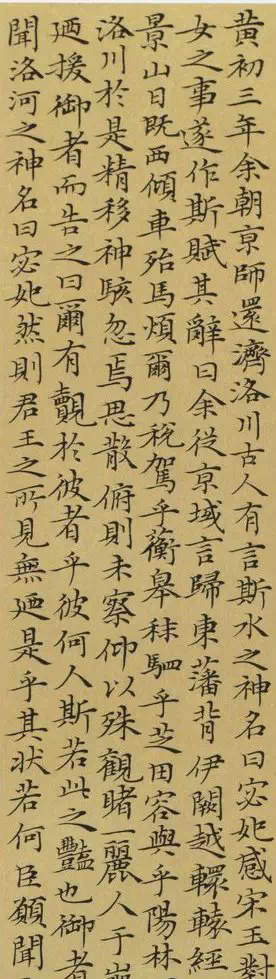 黃初三年余朝京師還濟洛川古人有言斯水之神名曰宓妃感宋玉對
女之事遂作斯賦其辭曰余從京域言歸東藩背伊闕越轘轅經
景山日既西傾車殆馬煩爾乃稅駕乎蘅皋秣駟乎芝田容與乎陽林
洛川於是精移神駭忽焉思散俯則未察仰以殊觀睹一麗人于
廼援御者而告之曰爾有覿於彼者乎彼何人斯若此之豔也御者
聞洛河之神名曰宓妃然則君王之所見無廼是乎其狀若何臣願聞